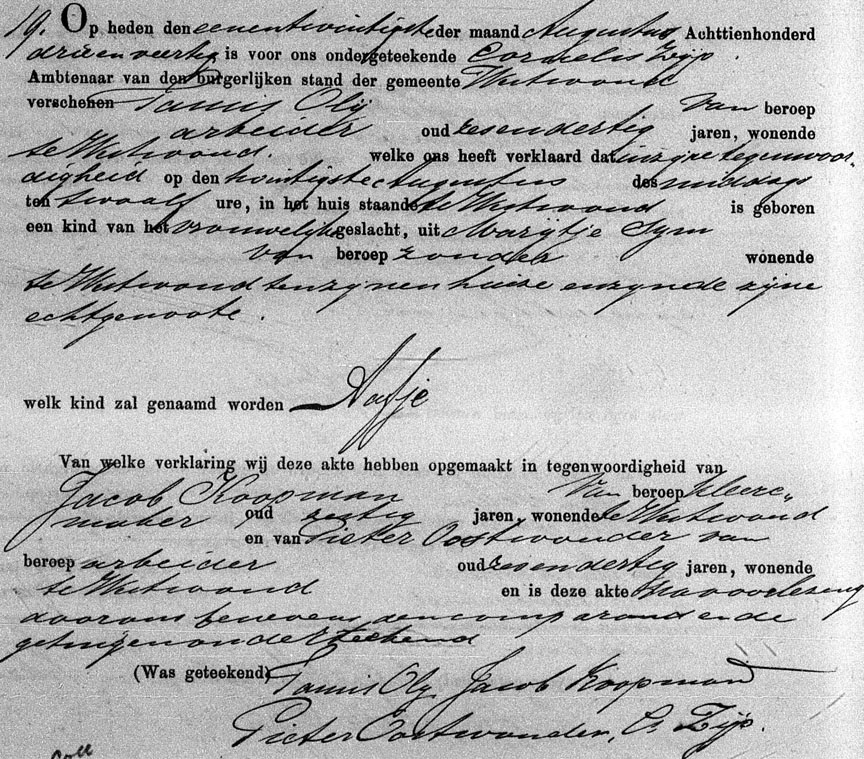 19. Op heden den eenentwintigste der maand Augustus, Achttienhonderd
drieenveertig is voor ons ondergeteekende Cornelis Zijp
Ambtenaar van den burgerlijken stand der gemeente Westwoud
verschenen Tamis Olij Van beroep
arbeider oud zesendertig jaren, wonende
te Westwoud. welke ons heeft verklaard dat in zijne tegenwoor-
digheid op den twintigste Augustus des middags
ten twaalf ure, in het huis staande te Westwoud is geboren
een kind van het vrouwelijk geslacht, uit Marijtje Sijm
van beroep zonder wonende
te Westwoud ten zijnen huize en zijnde zijne
echtgenoote.
welk kind zal genaamd worden Aafje
Van welke verklaring wij deze akte hebben opgemaakt in tegenwoordigheid van
Jacob Koopman Van beroep kleere„
maker oud zestig jaren, wonende te Westwoud
en van Pieter Oostwouder van
beroep arbeider oud zesendertig jaren, wonende
te Westwoud en is deze akte na voorlezing
door ons benevens den comparand en de
getuigen onderteekend
(Was geteekend) Tamis Olij Jacob Koopman
Pieter Oostwouder, C. Zijp.
Coll